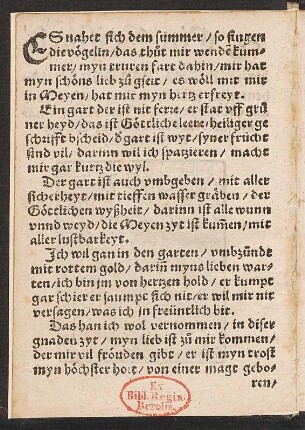 ES nahet sich dem summer / so singen
die vögelin / das thůt mir wendẽ kum-
mer / myn truren fart dahin / mir hat
myn schöns lieb zů gseit / es wöll mit mir
in Meyen / hat mir myn hertz erfreyt.
Ein gart der ist nit ferre / er stat vff grü
ner heyd / das ist Göttliche leere / heiliger ge
schrifft bscheid / d̊ gart ist wyt / syner frücht
sind vil / darinn wil ich spatzieren / macht
mir gar kurtz die wyl.
Der gart ist auch vmbgeben / mit aller
sicherheyt / mit tieffen wasser gräben / der
Göttlichen wyßheit / darinn ist alle wunn
vnnd weyd / die Meyen zyt ist kum̃en / mit
aller lustbarkeyt.
Ich wil gan in den garten / vmbzündt
mit rottem gold / dariñ myns lieben war-
ten / ich bin jm von hertzen hold / er kumpt
gar schier er saumpt sich nit / er wil mir nit
versagen / was ich jn freüntlich bit.
Das han ich wol vernommen / in diser
gnaden zyt / myn lieb ist zů mir kommen /
der mir vil fröuden gibt / er ist myn trost
myn höchster hort / von einer magt gebo-
ren /
Ex
Bibl. Regia
Berolin.